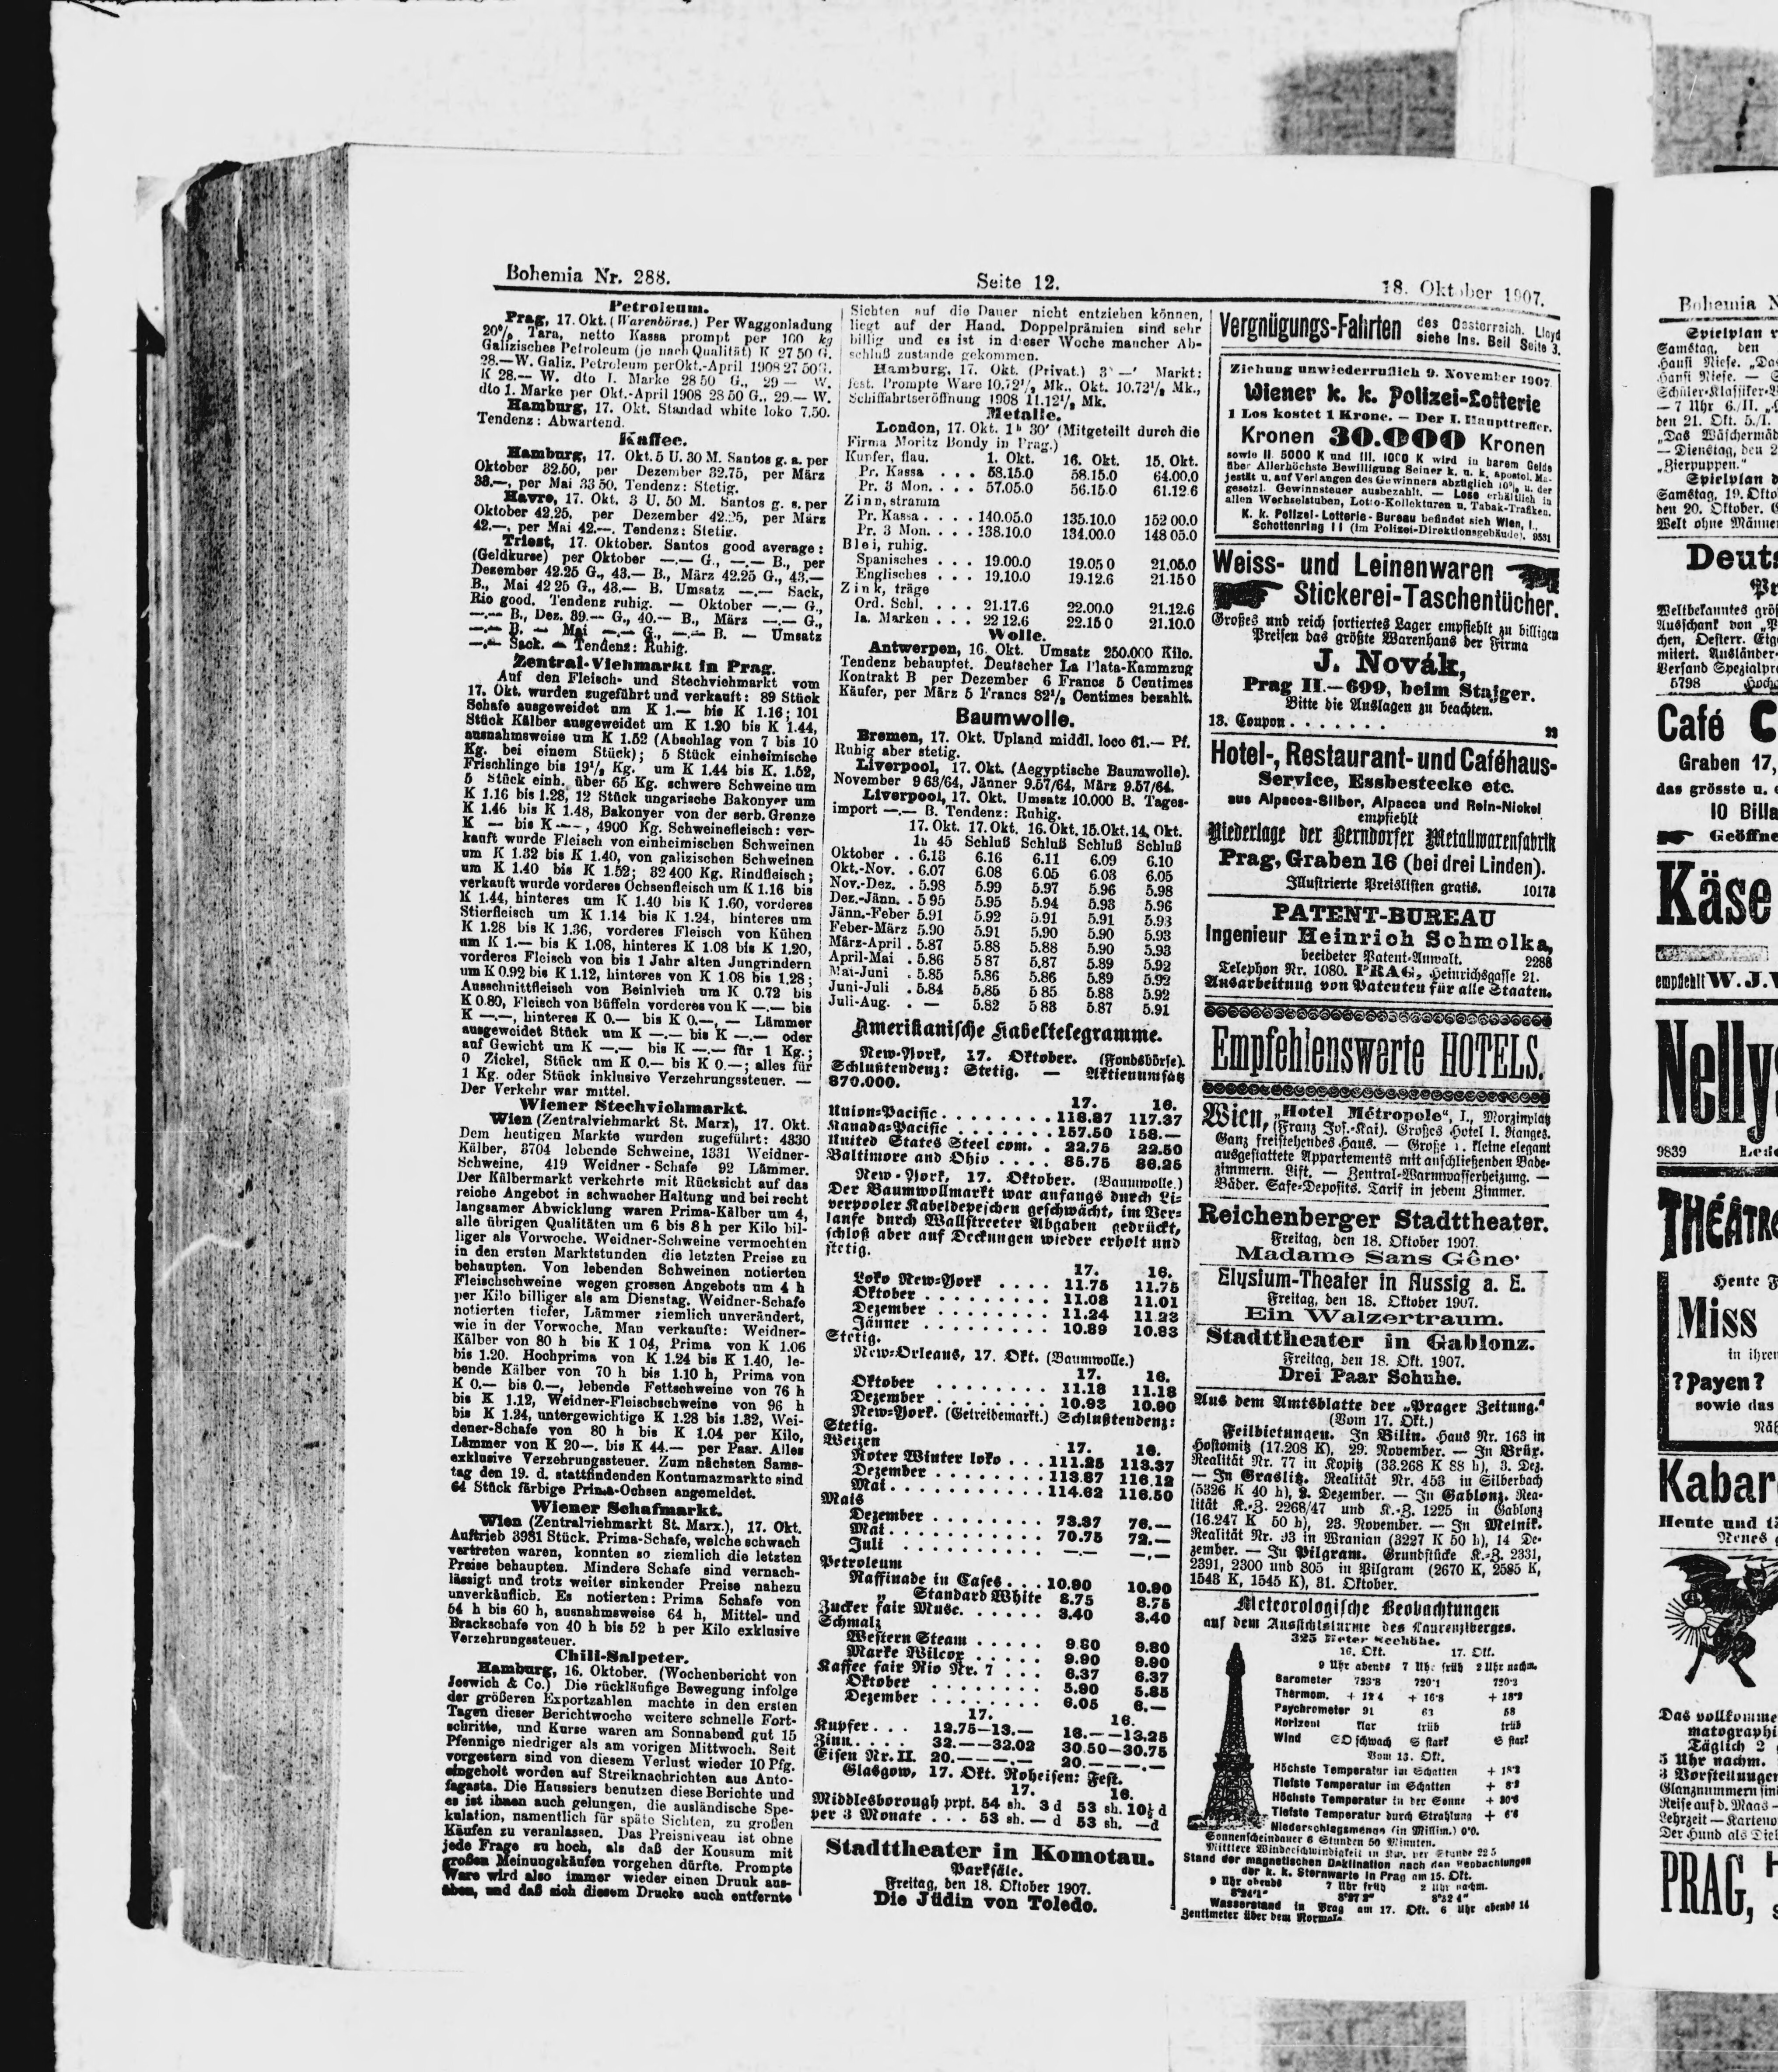 Bohemia Nr. 288.
Seite 12.
18. Oktober 1907.
Petroleum.
Prag, 17. Okt. (Warenbörse.) Per Waggonladung
20% Tara, netto Kassa prompt per 100 kg
Galizisches Petroleum (je nach Qualität) K 27 50 G.
28.—W. Galiz. Petroleum per Okt.-April 1908 27 50 G.
K 28.— W. dto I. Marke 28 50 G., 29 — W.
dto I. Marke per Okt.-April 1908 28 50 G., 29.— W.
Hamburg, 17. Okt. Standad white loko 7.50.
Tendenz: Abwartend.
Kaffee.
Hamburg, 17. Okt. 5 U. 30 M. Santos g. a. per
Oktober 32.50, per Dezember 32.75, per März
33.—, per Mai 33 50. Tendenz: Stetig.
Havre, 17. Okt. 3 U. 50 M. Santos g. s. per
Oktober 42.25, per Dezember 42.25, per März
42.—, per Mai 42.—. Tendenz: Stetig.
Triest, 17. Oktober. Santos good average:
(Geldkurse) per Oktober —.— G., —.— B., per
Dezember 42.25 G., 43.— B., März 42.25 G., 43.—
B., Mai 42 25 G., 43.— B. Umsatz —.— Sack,
Rio good. Tendenz ruhig. — Oktober —.— G.,
—.— B., Dez. 39.— G., 40.— B., März —.— G.,
—.— B. — Mai —.— G., —.— B. — Umsatz
—.— Sack. — Tendenz: Ruhig.
Zentral-Viehmarkt in Prag.
Auf den Fleisch- und Stechviehmarkt vom
17. Okt. wurden zugeführt und verkauft: 89 Stück
Schafe ausgeweidet um K 1.— bis K 1.16; 101
Stück Kälber ausgeweidet um K 1.20 bis K 1.44,
ausnahmsweise um K 1.52 (Abschlag von 7 bis 10
Kg. bei einem Stück); 5 Stück einheimische
Frischlinge bis 19½ Kg. um K 1.44 bis K. 1.52,
5 Stück einh. über 65 Kg. schwere Schweine um
K 1.16 bis 1.28, 12 Stück ungarische Bakonyer um
K 1.46 bis K 1.48, Bakonyer von der serb. Grenze
K — bis K —, 4900 Kg. Schweinefleisch: ver-
kauft wurde Fleisch von einheimischen Schweinen
um K 1.32 bis K 1.40, von galizischen Schweinen
um K 1.40 bis K 1.52; 32400 Kg. Rindfleisch;
verkauft wurde vorderes Ochsenfleisch um K 1.16 bis
K 1.44, hinteres um K 1.40 bis K 1.60, vorderes
Stierfleisch um K 1.14 bis K 1.24, hinteres um
K 1.28 bis K 1.36, vorderes Fleisch von Kühen
um K 1.— bis K 1.08, hinteres K 1.08 bis K 1.20,
vorderes Fleisch von bis 1 Jahr alten Jungrindern
um K 0.92 bis K 1.12, hinteres von K 1.08 bis 1.28;
Ausschnittfleisch von Beinlvieh um K 0.72 bis
K 0.80, Fleisch von Büffeln vorderes von K —.— bis
K —.—, hinteres K 0.— bis K 0.—, — Lämmer
ausgeweidet Stück um K —.— bis K —.— oder
auf Gewicht um K —.— bis K —.— für 1 Kg.;
0 Zickel, Stück um K 0.— bis K 0.—; alles für
1 Kg. oder Stück inklusive Verzehrungssteuer. —
Der Verkehr war mittel.
Wiener Stechviehmarkt.
Wien (Zentralviehmarkt St. Marx), 17. Okt.
Dem heutigen Markte wurden zugeführt: 4330
Kälber, 3704 lebende Schweine, 1331 Weidner-
Schweine, 419 Weidner-Schafe 92 Lämmer.
Der Kälbermarkt verkehrte mit Rücksicht auf das
reiche Angebot in schwacher Haltung und bei recht
langsamer Abwicklung waren Prima-Kälber um 4,
alle übrigen Qualitäten um 6 bis 8 h per Kilo bil-
liger als Vorwoche. Weidner-Schweine vermochten
in den ersten Marktstunden die letzten Preise zu
behaupten. Von lebenden Schweinen notierten
Fleischschweine wegen grossen Angebots um 4 h
per Kilo billiger als am Dienstag. Weidner-Schafe
notierten tiefer, Lämmer ziemlich unverändert,
wie in der Vorwoche. Man verkaufte: Weidner-
Kälber von 80 h bis K 1 04, Prima von K 1.06
bis 1.20. Hochprima von K 1.24 bis K 1.40, le-
bende Kälber von 70 h bis 1.10 h, Prima von
K 0.— bis 0.—, lebende Fettschweine von 76 h
bis K 1.12, Weidner-Fleischschweine von 96 h
bis K 1.24, untergewichtige K 1.28 bis 1.32, Wei-
dener-Schafe von 80 h bis K 1.04 per Kilo,
Lämmer von K 20—. bis K 44.— per Paar. Alles
exklusive Verzehrungssteuer. Zum nächsten Sams-
tag den 19. d. stattfindenden Kontumazmarkte sind
64 Stück färbige Prima-Ochsen angemeldet.
Wiener Schafmarkt.
Wien (Zentralviehmarkt St. Marx.), 17. Okt.
Auftrieb 3981 Stück. Prima-Schafe, welche schwach
vertreten waren, konnten so ziemlich die letzten
Preise behaupten. Mindere Schafe sind vernach-
lässigt und trotz weiter sinkender Preise nahezu
unverkäuflich. Es notierten: Prima Schafe von
54 h bis 60 h, ausnahmsweise 64 h, Mittel- und
Brackschafe von 40 h bis 52 h per Kilo exklusive
Verzehrungssteuer.
Chili-Salpeter.
Hamburg, 16. Oktober. (Wochenbericht von
Joswich & Co.) Die rückläufige Bewegung infolge
der größeren Exportzahlen machte in den ersten
Tagen dieser Berichtwoche weitere schnelle Fort-
schritte, und Kurse waren am Sonnabend gut 15
Pfennige niedriger als am vorigen Mittwoch. Seit
vorgestern sind von diesem Verlust wieder 10 Pfg.
eingeholt worden auf Streiknachrichten aus Anto-
fagasta. Die Haussiers benutzen diese Berichte und
es ist ihnen auch gelungen, die ausländische Spe-
kulation, namentlich für späte Sichten, zu großen
Käufen zu veranlassen. Das Preisniveau ist ohne
jede Frage zu hoch, als daß der Konsum mit
großen Meinungskäufen vorgehen dürfte. Prompte
Ware wird also immer wieder einen Druck aus-
üben, und daß sich diesem Drucke auch entfernte
Sichten auf die Dauer nicht entziehen können,
liegt auf der Hand. Doppelprämien sind sehr
billig und es ist in dieser Woche mancher Ab-
schluß zustande gekommen.
Hamburg, 17. Okt. (Privat.) Markt:
fest. Prompte Ware 10.72½ Mk., Okt. 10.72½ Mk.,
Schiffahrtseröffnung 1908 11.12½ Mk.
Metalle.
London, 17. Okt. 1h 30' (Mitgeteilt durch die
Firma Moritz Bondy in Prag.)
Kupfer, flau. 1. Okt. 16. Okt. 15. Okt.
Pr. Kassa . . . 58.15.0 58.15.0 64.00.0
Pr. 3 Mon. . . . 57.05.0 56.15 0 61.12 6
Zinn, stramm
Pr. Kassa . . . . 140.05.0 135.10.0 152 00.0
Pr. 3 Mon. . . . 138.10.0 134.00.0 148 05.0
Blei, ruhig.
Spanisches . . . 19.00.0 19.05 0 21.05.0
Englisches . . . 19.10.0 19.12.6 21.15 0
Zink, träge
Ord. Schl. . . . 21.17.6 22.00.0 21.12.6
Ia. Marken . . . 22 12.6 22.15 0 21.10.0
Wolle.
Antwerpen, 16. Okt. Umsatz 250.000 Kilo.
Tendenz behauptet. Deutscher La Plata-Kammzug
Kontrakt B per Dezember 6 Francs 5 Centimes
Käufer, per März 5 Francs 82½ Centimes bezahlt.
Baumwolle.
Bremen, 17. Okt. Upland middl. loco 61.— Pf.
Ruhig aber stetig.
Liverpool, 17. Okt. (Aegyptische Baumwolle).
November 9 63/64, Jänner 9.57/64, März 9.57/64.
Liverpool, 17. Okt. Umsatz 10.000 B. Tages-
import —.— B. Tendenz: Ruhig.
17. Okt. 17. Okt. 16. Okt. 15. Okt. 14. Okt.
1h 45 Schluß Schluß Schluß Schluß
Oktober . . 6.13 6.16 6.11 6.09 6.10
Okt.-Nov. . 6.07 6.08 6 05 6.03 6.05
Nov.-Dez. . 5.98 5.99 5.97 5.96 5.98
Dez.-Jänn. . 5 95 5.95 5.94 5.93 5.96
Jänn.-Feber 5.91 5.92 5.91 5.91 5.93
Feber-März 5.90 5.91 5.90 5.90 5.93
März-April . 5.87 5.88 5.88 5.90 5.93
April-Mai . 5.86 5 87 5.87 5.89 5.92
Mai-Juni . 5.85 5.86 5.86 5.89 5.92
Juni-Juli . 5.84 5.85 5 85 5.88 5.92
Juli-Aug. . — 5.82 5 83 5.87 5.91
Amerikanische Kabeltelegramme.
New-York, 17. Oktober. (Fondsbörse).
Schlußtendenz: Stetig. — Aktienumsatz
870.000.
17. 16.
Union-Pacific . . . . . . . . 118.87 117.37
Kanada-Pacific . . . . . . . 157.50 158.—
United States Steel com. . 22.75 22.50
Baltimore and Ohio . . . . 85.75 86.25
New-York, 17. Oktober. (Baumwolle.)
Der Baumwollmarkt war anfangs durch Li-
verpooler Kabeldepeschen geschwächt, im Ver-
laufe durch Wallstreeter Abgaben gedrückt,
schloß aber auf Deckungen wieder erholt und
stetig.
17. 16.
Loko New-York . . . . 11.75 11.75
Oktober . . . . . . . . . 11.08 11.01
Dezember . . . . . . . . 11.24 11.23
Jänner . . . . . . . . . 10.89 10.83
Stetig.
New-Orleans, 17. Okt. (Baumwolle.)
17. 16.
Oktober . . . . . . . . 11.18 11.18
Dezember . . . . . . . . 10.93 10.90
New-York. (Getreidemarkt.) Schlußtendenz:
Stetig.
Weizen 17. 16.
Roter Winter loko . . . 111.25 113.37
Dezember . . . . . . . . 113.87 116.12
Mai . . . . . . . . . . . 114.62 116.50
Mais
Dezember . . . . . . . . 73.37 76.—
Mai . . . . . . . . . . . 70.75 72.—
Juli . . . . . . . . . . —.— —.—
Petroleum
Raffinade in Cases . . . 10.90 10.90
„ Standard White 8.75 8.75
Zucker fair Musc. . . . . . 3.40 3.40
Schmalz
Western Steam . . . . . 9.80 9.80
Marke Wilcox . . . . . . 9.90 9.90
Kaffee fair Rio Nr. 7 . . . 6.37 6.37
Oktober . . . . . . . . 5.90 5.85
Dezember . . . . . . . . 6.05 6.—
17. 16.
Kupfer . . . 12.75—13.— 13.—13.25
Zinn . . . . 32.——32.02 30.50—30.75
Eisen Nr. II. 20.—–—.— 20.—–—.—
Glasgow, 17. Okt. Roheisen: Fest.
17. 16.
Middlesborough prpt. 54 sh. 3 d 53 sh. 10½ d
per 3 Monate . . . 53 sh. — d 53 sh. —d
Stadttheater in Komotau.
Parksäle.
Freitag, den 18. Oktober 1907.
Die Jüdin von Toledo.
Vergnügungs-Fahrten des Oesterreich. Lloyd
siehe Ins. Beil Seite 3.
Ziehung unwiederruflich 9. November 1907
Wiener k. k. Polizei-Lotterie
1 Los kostet 1 Krone. — Der I. Haupttreffer.
Kronen 30.000 Kronen
sowie II. 5000 K und III. 1000 K wird in barem Gelde
über Allerhöchste Bewilligung Seiner k. u. k. apostol. Ma-
jestät u. auf Verlangen des Gewinners abzüglich 10% u. der
gesetzl. Gewinnsteuer ausbezahlt. — Lose erhältlich in
allen Wechselstuben, Lotto-Kollekturen u. Tabak-Trafiken.
K. k. Polizei-Lotterie-Bureau befindet sich Wien, I.,
Schottenring 11 (im Polizei-Direktionsgebäude). 9531
Weiss- und Leinenwaren
Stickerei-Taschentücher.
Großes und reich sortiertes Lager empfiehlt zu billigen
Preisen das größte Warenhaus der Firma
J. Novák,
Prag II.—699, beim Stajger.
Bitte die Auslagen zu beachten.
13. Coupon . . . . . . .
23
Hotel-, Restaurant- und Caféhaus-
Service, Essbestecke etc.
aus Alpacca-Silber, Alpacca und Rein-Nickel
empfiehlt
Niederlage der Berndorfer Metallwarenfabrik
Prag, Graben 16 (bei drei Linden).
Illustrierte Preislisten gratis. 10178
PATENT-BUREAU
Ingenieur Heinrich Schmolka,
beeideter Patent-Anwalt. 2288
Telephon Nr. 1080. PRAG, Heinrichsgasse 21.
Ausarbeitung von Patenten für alle Staaten.
Empfehlenswerte HOTELS.
Wien, „Hotel Métropole“, I., Morzinplatz
(Franz Jos.-Kai). Großes Hotel I. Ranges.
Ganz freistehendes Haus. — Große u. kleine elegant
ausgestattete Appartements mit anschließenden Bade-
zimmern. Lift. — Zentral-Warmwasserheizung. —
Bäder. Safe-Deposits. Tarif in jedem Zimmer.
Reichenberger Stadttheater.
Freitag, den 18. Oktober 1907.
Madame Sans Gêne
Elysium-Theater in Aussig a. E.
Freitag, den 18. Oktober 1907.
Ein Walzertraum.
Stadttheater in Gablonz.
Freitag, den 18. Okt. 1907.
Drei Paar Schuhe.
Aus dem Amtsblatte der „Prager Zeitung.“
(Vom 17. Okt.)
Feilbietungen. In Bilin. Haus Nr. 163 in
Hostomitz (17.208 K), 29. November. — In Brüx.
Realität Nr. 77 in Kopitz (33.268 K 88 h), 3. Dez.
— In Graslitz. Realität Nr. 453 in Silberbach
(5326 K 40 h), 3. Dezember. — In Gablonz. Rea-
lität K.-Z. 2268/47 und K.-Z. 1225 in Gablonz
(16.247 K 50 h), 23. November. — In Melnik.
Realität Nr. 93 in Wranian (3227 K 50 h), 14 De-
zember. — In Pilgram. Grundstücke K.-Z. 2331,
2391, 2300 und 805 in Pilgram (2670 K, 2585 K,
1543 K, 1545 K), 31. Oktober.
Meteorologische Beobachtungen
auf dem Aussichtsturme des Laurenziberges.
325 Meter Seehöhe.
16. Okt. 17. Okt.
9 Uhr abends 7 Uhr früh 2 Uhr nachm.
Barometer 723·8 720·1 720·3
Thermom. + 12 4 + 16·8 + 18·2
Psychrometer 91 63 58
Horizont klar trüb trüb
Wind SO schwach S stark S stark
Vom 13. Okt.
Höchste Temperatur im Schatten + 18·2
Tiefste Temperatur im Schatten + 8·2
Höchste Temperatur in der Sonne + 30·6
Tiefste Temperatur durch Strahlung + 6·8
Niederschlagsmenge (in Millim.) 0·0.
Sonnenscheindauer 6 Stunden 50 Minuten.
Mittlere Windgeschwindigkeit in Km. der Stunde 22 5
Stand der magnetischen Deklination nach den Beobachtungen
der k. k. Sternwarte in Prag am 15. Okt.
9 Uhr abends 7 Uhr früh 2 Uhr nachm.
8°24'1" 8°27 2" 8°32 4"
Wasserstand in Prag am 17. Okt. 6 Uhr abends 14
Zentimeter über dem Normale.
Bohemia N
Spielplan
Samstag, den
Hansi Niese. „Da
Hansi Niese. —
Schüler-Klassiker-
— 7 Uhr 6./II.
den 21. Okt. 5./I.
„Das Wäschermäd
— Dienstag, den 2
„Zierpuppen.“
Spielplan d
Samstag, 19. Okto
den 20. Oktober.
Welt ohne Männe
Deuts
Weltbekanntes grö
Ausschank von
chen, Oesterr.
miiert. Ausländer-
Versand Spezialpre
5798
Café C
Graben 17,
das grösste u.
10 Billa
Geöffne
Käse
empfiehlt W. J.
Nelly
9839
THÉATRE
Heute
Miss
in ihren
? Payen ?
sowie das
Kabar
Heute und
Neues
Das vollkomme
matographi
Täglich 2
5 Uhr nachm.
3 Vorstellungen
Glanznummern
Reise auf d. Maas
Lehrzeit — Karteno
Der Hund als Die
PRAG,